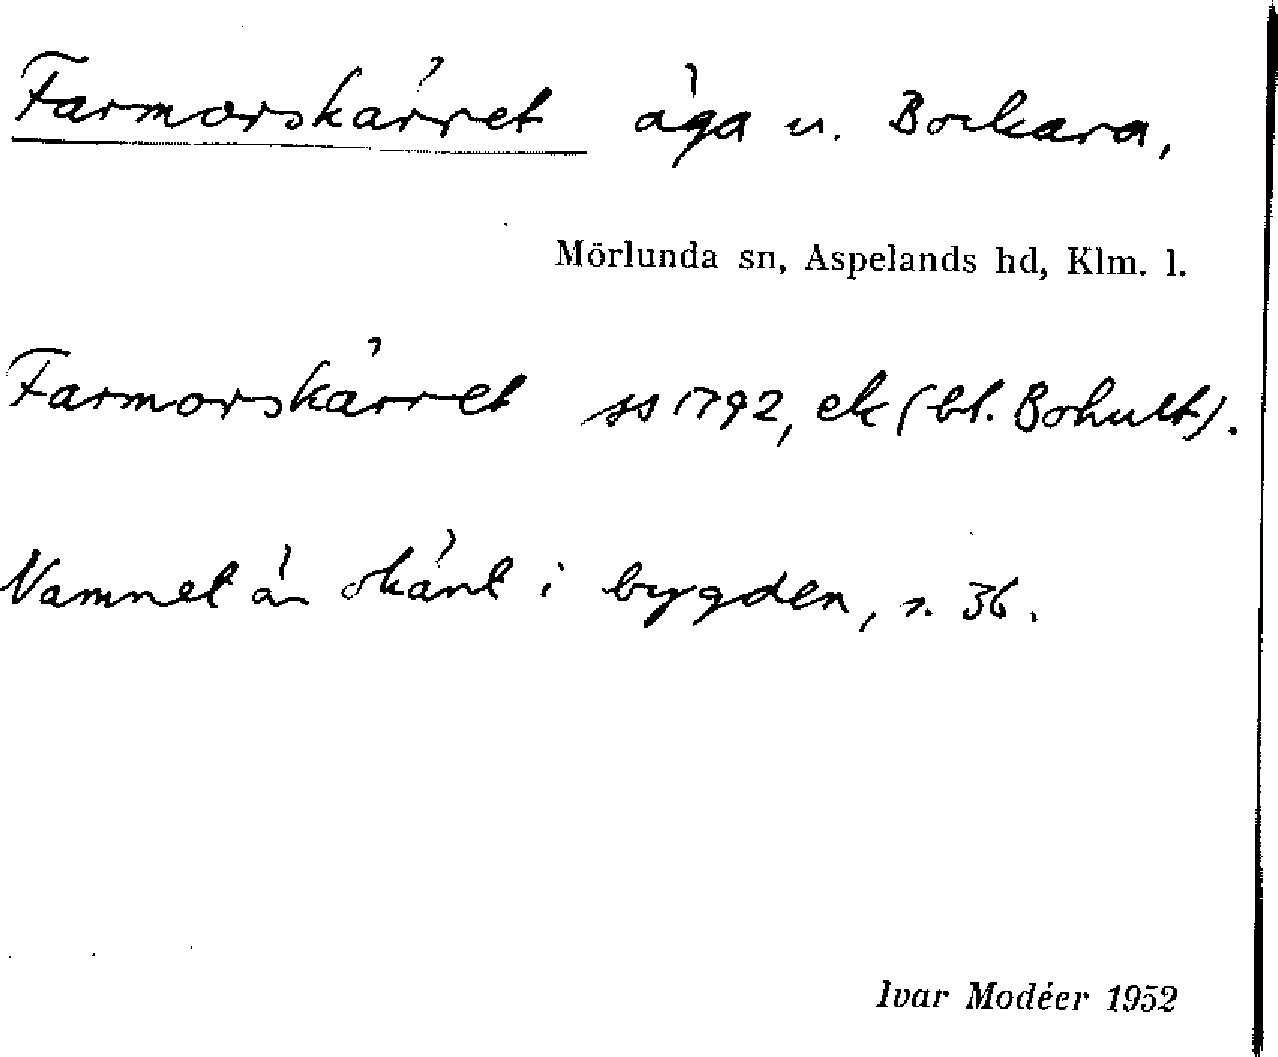 Farmorskärret äga u. Bockara,
Mörlunda sn, Aspelands hd, Klm. l.
Farmorskärret ss 1792, ek (bl. Bohult).
Namnet är okänt i bygden, s. 36.
Ivar Modéer 1952